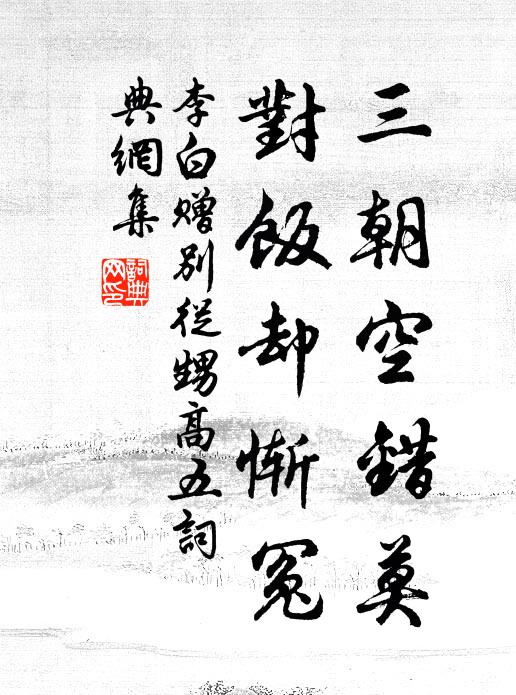 三朝空錯莫
對飯却慚冤
李白贈別從甥高五詞
典網集
詞典
网印